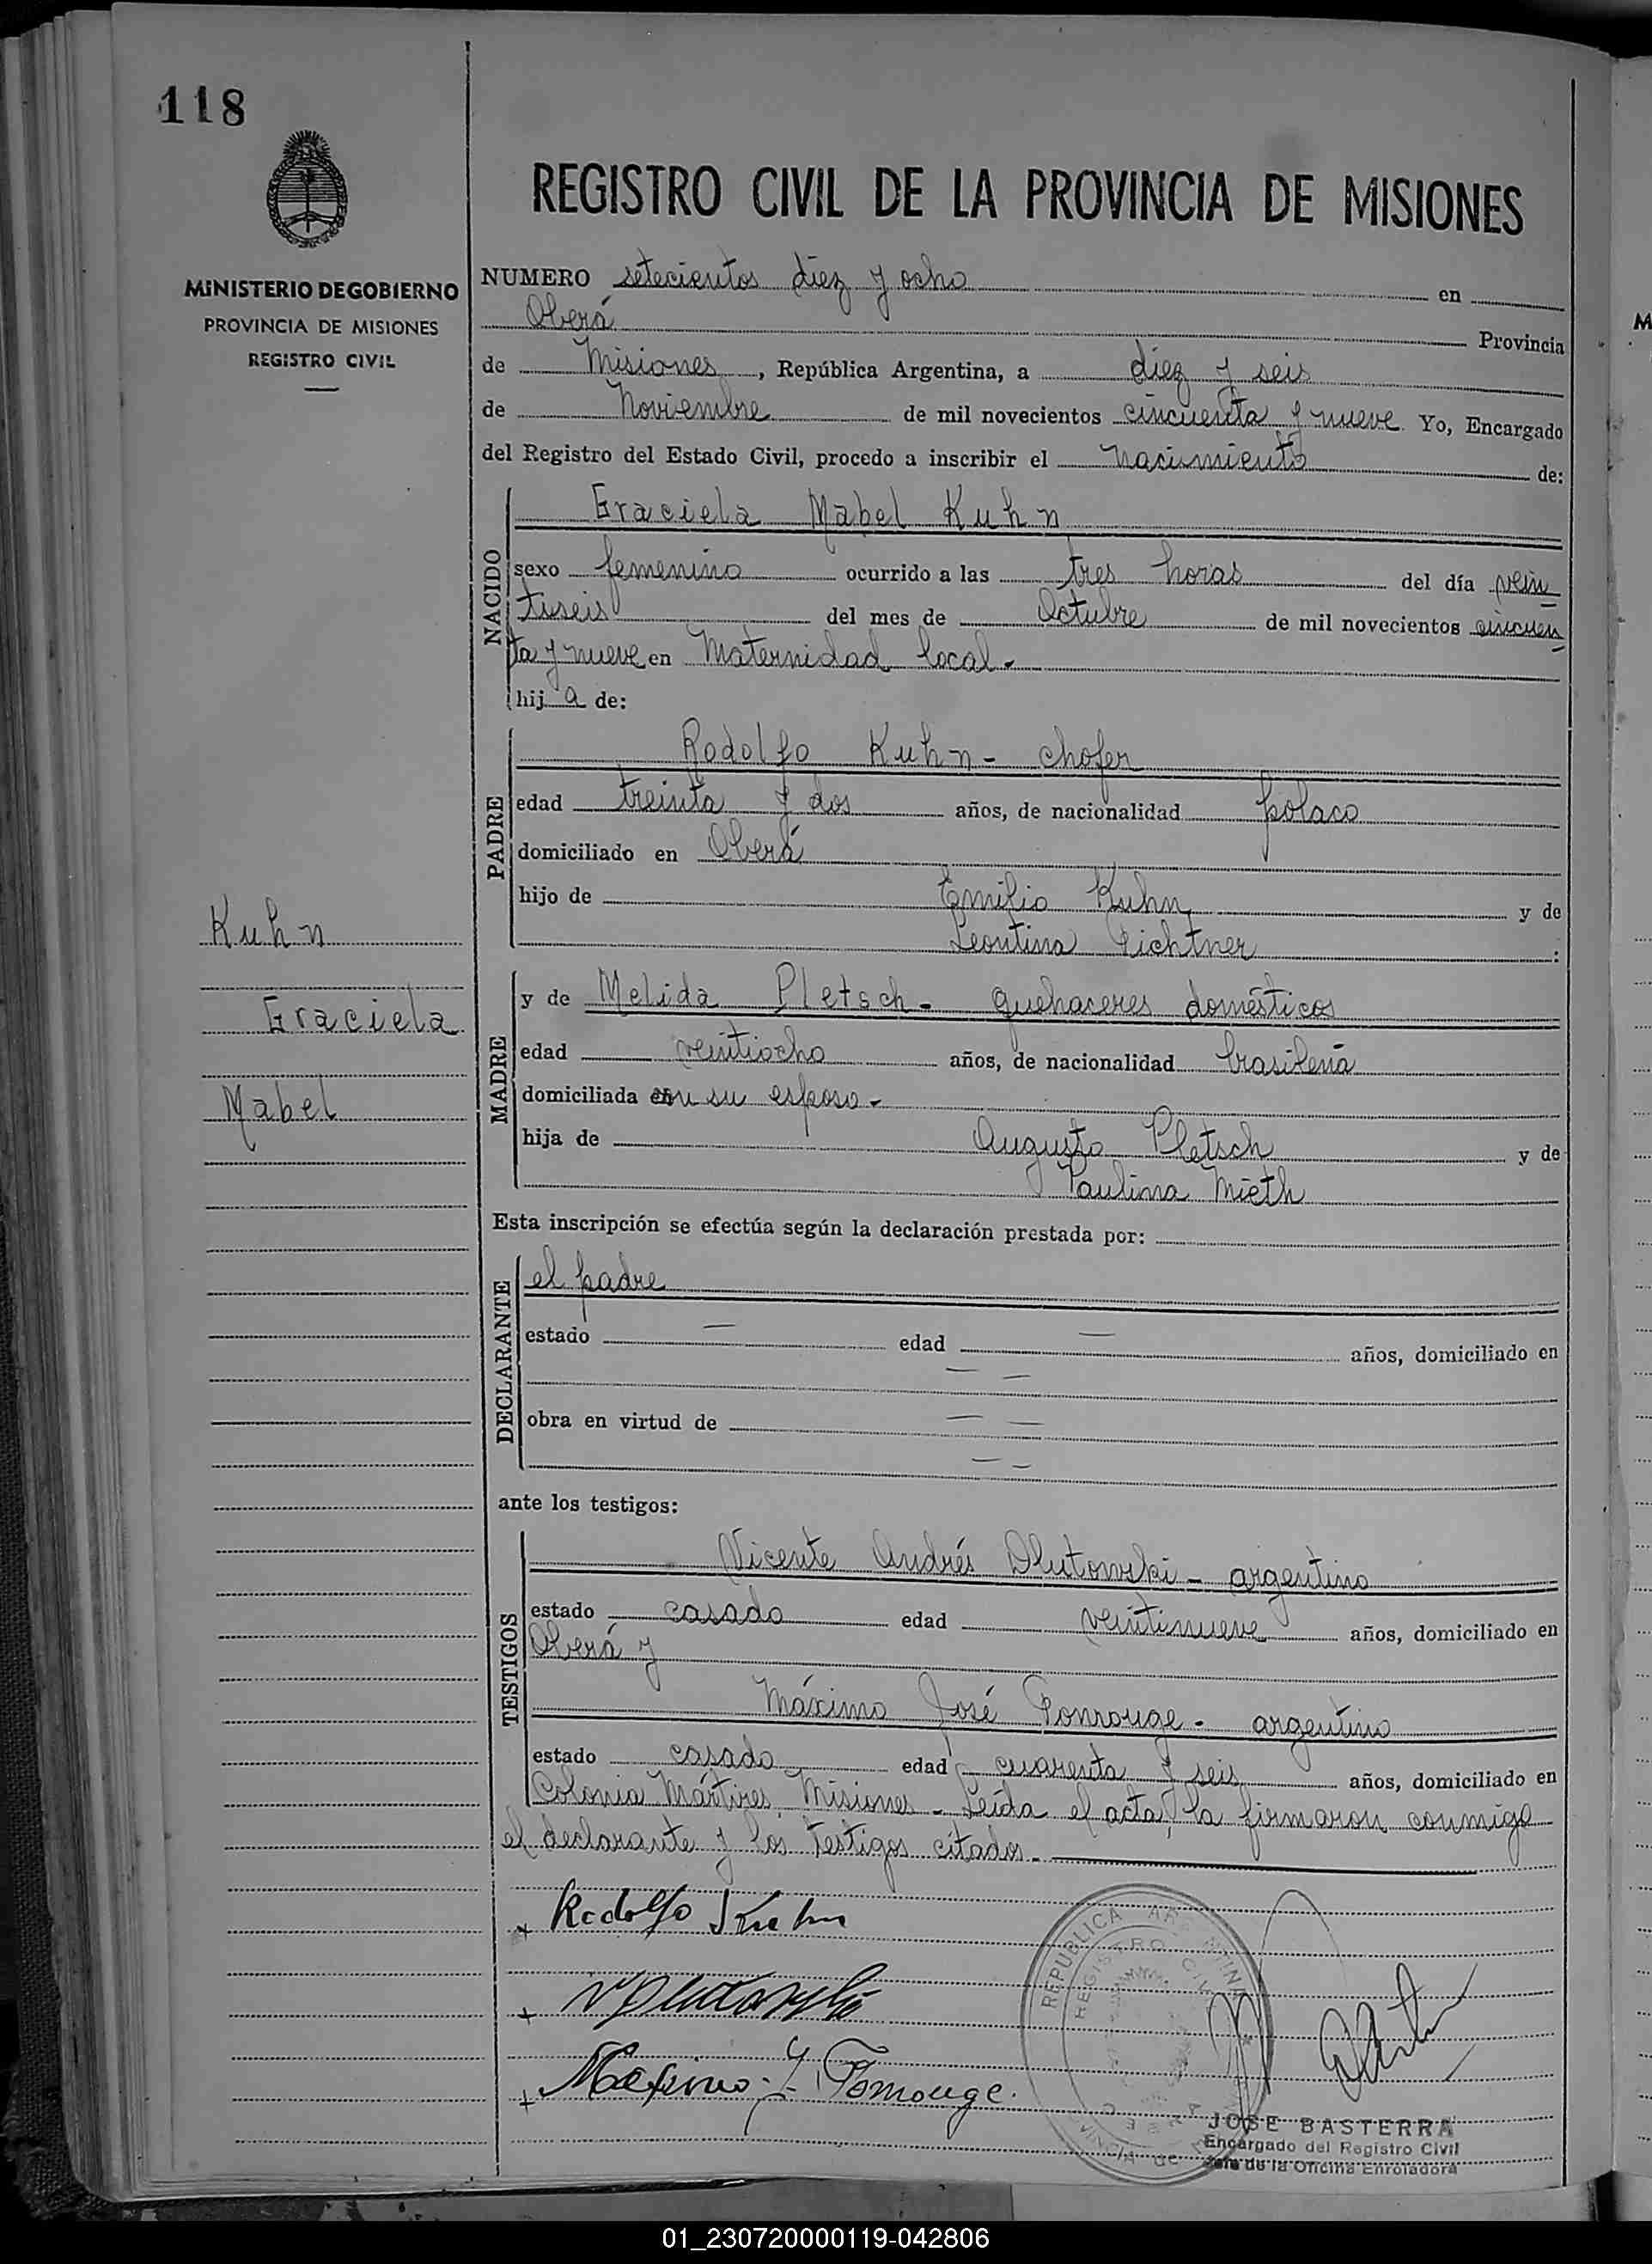 118
MINISTERIO DE GOBIERNO
PROVINCIA DE MISIONES
REGISTRO CIVIL
REGISTRO CIVIL DE LA PROVINCIA DE MISIONES
NUMERO setecientos diez y ocho en
Oberá Provincia
de Misiones, República Argentina, a diez y seis
de Noviembre de mil novecientos cincuenta y nueve. Yo, Encargado
del Registro del Estado Civil, procedo a inscribir el nacimiento de:
NACIDO
Graciela Mabel Kuhn
sexo femenino ocurrido a las tres horas del día vein
tiseis del mes de Octubre de mil novecientos cincuen
ta y nueve en Maternidad local.-
hij a de:
PADRE
Rodolfo Kuhn - chofer
edad treinta y dos años, de nacionalidad polaco
domiciliado en Oberá
hijo de Emilio Kuhn y de
Leontina Richtner :
Kuhn
Graciela
Mabel
MADRE
y de Melida Pletsch - quehaceres domésticos
edad veintiocho años, de nacionalidad brasileña
domiciliada con su esposo -
hija de Augusto Pletsch y de
Paulina Mieth
Esta inscripción se efectúa según la declaración prestada por:
DECLARANTE
el padre
estado — edad — años, domiciliado en
— —
obra en virtud de — —
— —
ante los testigos:
TESTIGOS
Vicente Andrés Dlutowski - argentino
estado casado edad veintinueve años, domiciliado en
Oberá y
Máximo José Ponrouge - argentino
estado casado edad cuarenta y seis años, domiciliado en
Colonia Mártires, Misiones - Leída el acta, la firmaron conmigo
el declarante y los testigos citados.-
Rodolfo Kuhn
Maximo J. Ponrouge.
REPUBLICA ARGENTINA
REGISTRO CIVIL
JOSE BASTERRA
Encargado del Registro Civil
Jefe de la Oficina Enroladora
01_230720000119-042806